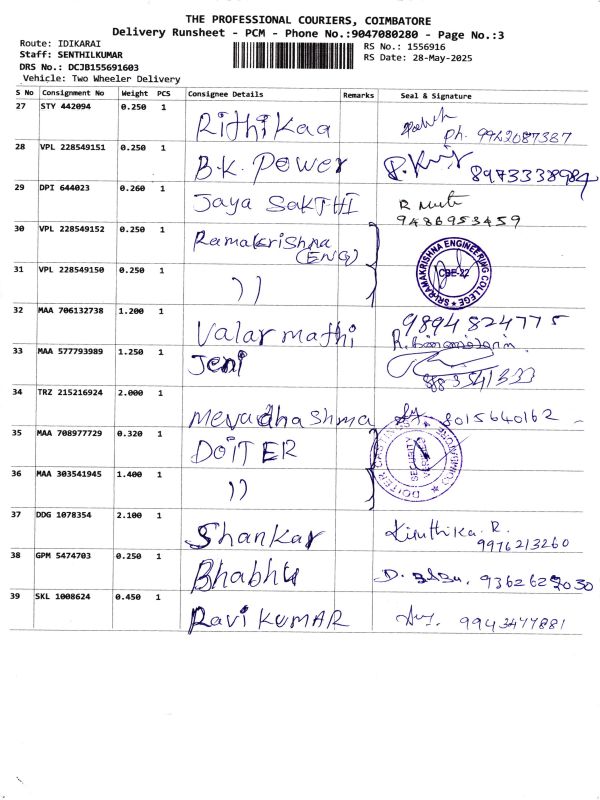 THE PROFESSIONAL COURIERS, COIMBATORE
Delivery Runsheet - PCM - Phone No.:9047080280 - Page No.:3
Route: IDIKARAI
Staff: SENTHILKUMAR
DRS No.: DCJB155691603
Vehicle: Two Wheeler Delivery
RS No.: 1556916
RS Date: 28-May-2025
S No Consignment No Weight PCS Consignee Details Remarks Seal & Signature
27 STY 442094 0.250 1 Rithikaa Ph. 9942087387
28 VPL 228549151 0.250 1 B.K. Power 8973338984
29 DPI 644023 0.260 1 Jaya SakTHI 9486953459
30 VPL 228549152 0.250 1 Ramakrishna (ENG)
31 VPL 228549150 0.250 1 ))
SRI RAMAKRISHNA ENGINEERING COLLEGE
CBE-22
32 MAA 706132738 1.200 1 Valarmathi 9894824775
33 MAA 577793989 1.250 1 Jeni
34 TRZ 215216924 2.000 1 8015640162
35 MAA 708977729 0.320 1 DOITER
36 MAA 303541945 1.400 1 ))
SECURITY
COIMBATORE
37 DDG 1078354 2.100 1 Shankar Kiruthika. R. 9976213260
38 GPM 5474703 0.250 1 Bhabhu
39 SKL 1008624 0.450 1 Ravi KUMAR 9943477881